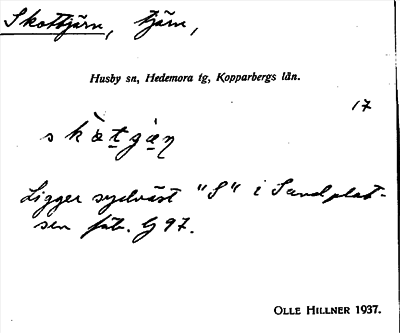 Skottjärn, tjärn,
Husby sn, Hedemora tg, Kopparbergs län.
17
skàtgàn
Ligger sydväst "S" i Sandplat-
sen fäb. G 97.
OLLE HILLNER 1937.